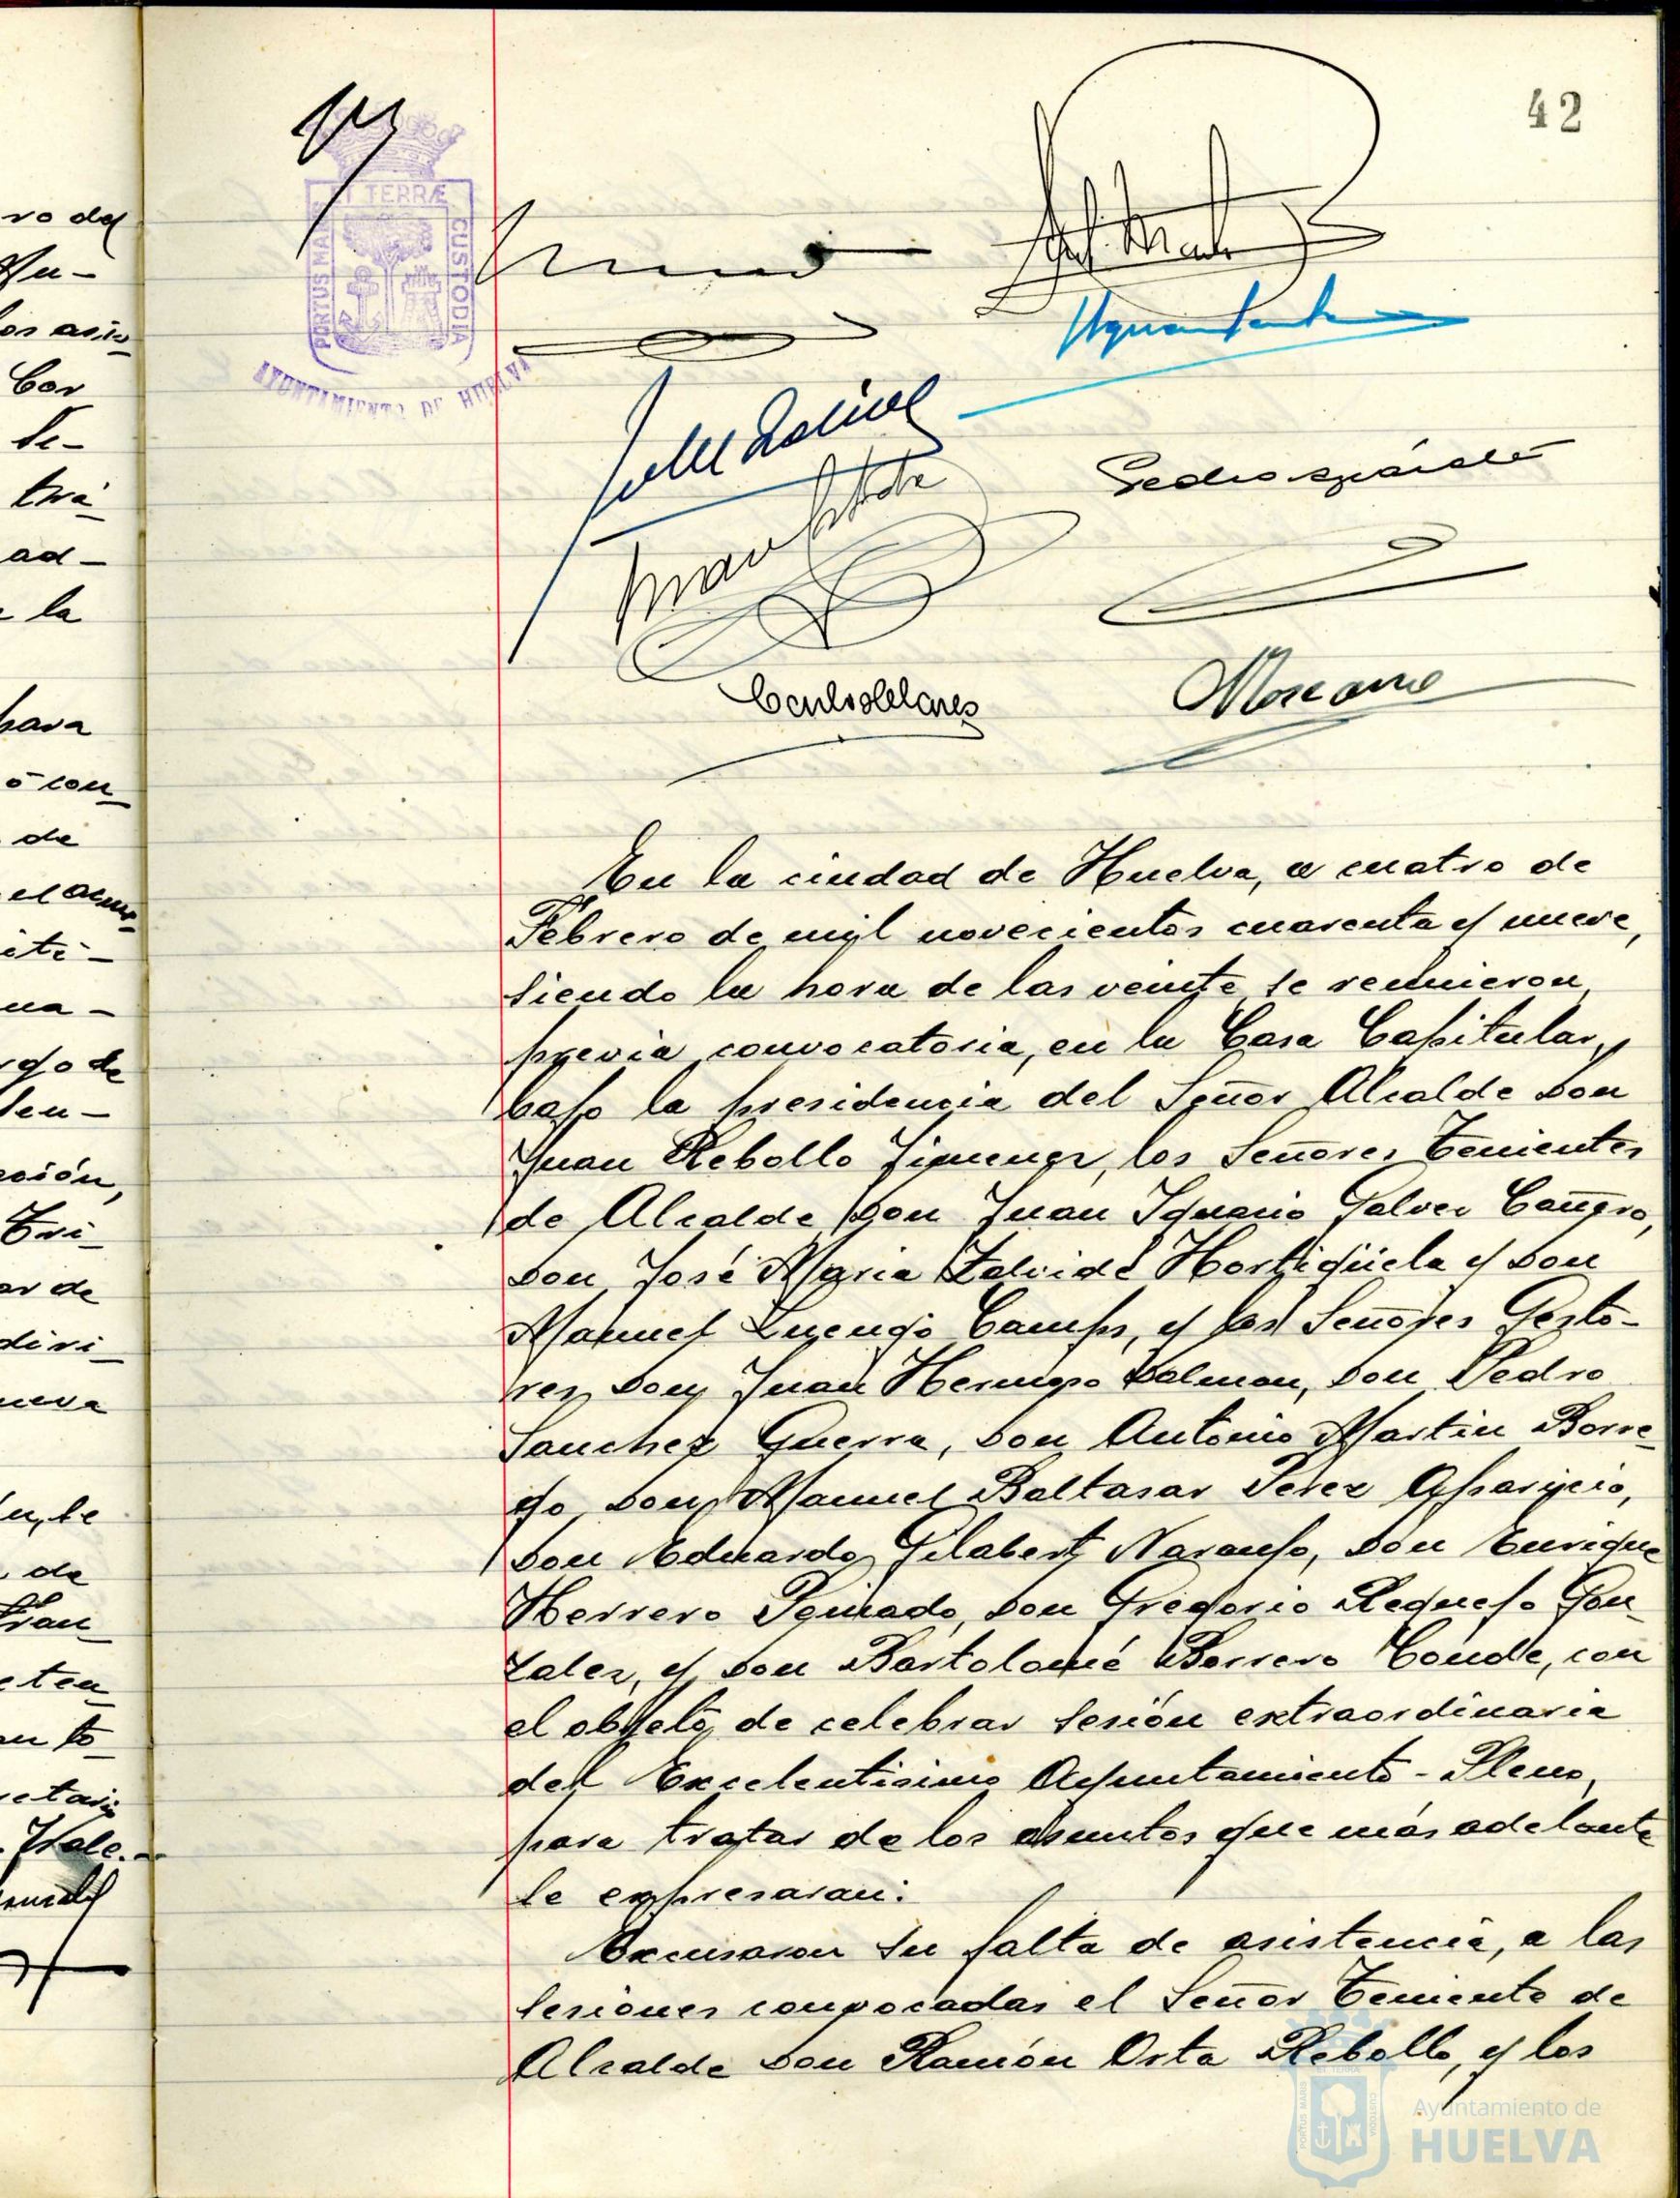 42
ET TERRÆ
PORTUS MARIS
CUSTODIA
AYUNTAMIENTO DE HUELVA
En la ciudad de Huelva, a cuatro de
Febrero de mil novecientos cuarenta y nueve,
siendo la hora de las veinte, se reunieron,
previa convocatoria, en la Casa Capitular,
bajo la presidencia del Señor Alcalde Don
Juan Rebollo Jimenez, los Señores Tenientes
de Alcalde Don Juan Ignacio Galvez Cañero,
Don José Maria Zalvide Hortigüela y Don
Manuel Luengo Camps, y los Señores Gesto-
res, Don Juan Hermoso Dalmau, Don Pedro
Sanchez Guerra, Don Antonio Martin Borre-
go, Don Manuel Baltasar Perez Aparicio,
Don Eduardo Gilabert Naranjo, Don Enrique
Herrero Peinado, Don Gregorio Requejo Gon-
zalez, y Don Bartolomé Borrero Conde, con
el objeto de celebrar sesión extraordinaria
del Excelentisimo Ayuntamiento-Pleno,
para tratar de los asuntos que más adelante
se expresaran.
Excusaron su falta de asistencia, a las
sesiones convocadas el Señor Teniente de
Alcalde Don Ramón Orta Rebollo, y los
ro del
los asun
Se-
ad-
la
para
ó con
de
el acuer
na-
rgo de
ción,
ar de
divi
nueva
de
Fran
Ayuntamiento de
HUELVA